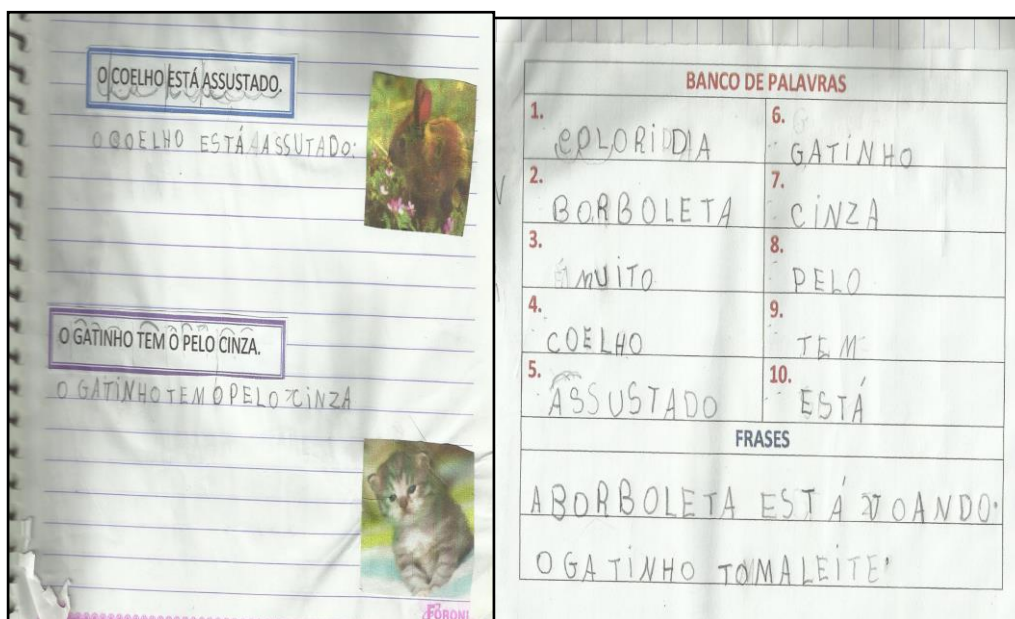 O COELHO ESTÁ ASSUSTADO.
O COELHO ESTÁ ASSUTADO.
O GATINHO TEM O PELO CINZA.
O GATINHO TEM O PELO CINZA
FORONI
BANCO DE PALAVRAS
1. COLORIDIA
6. GATINHO
2. BORBOLETA
7. CINZA
3. MUITO
8. PELO
4. COELHO
9. TEM
5. ASSUSTADO
10. ESTÁ
FRASES
A BORBOLETA ESTÁ VOANDO.
O GATINHO TOMA LEITE.